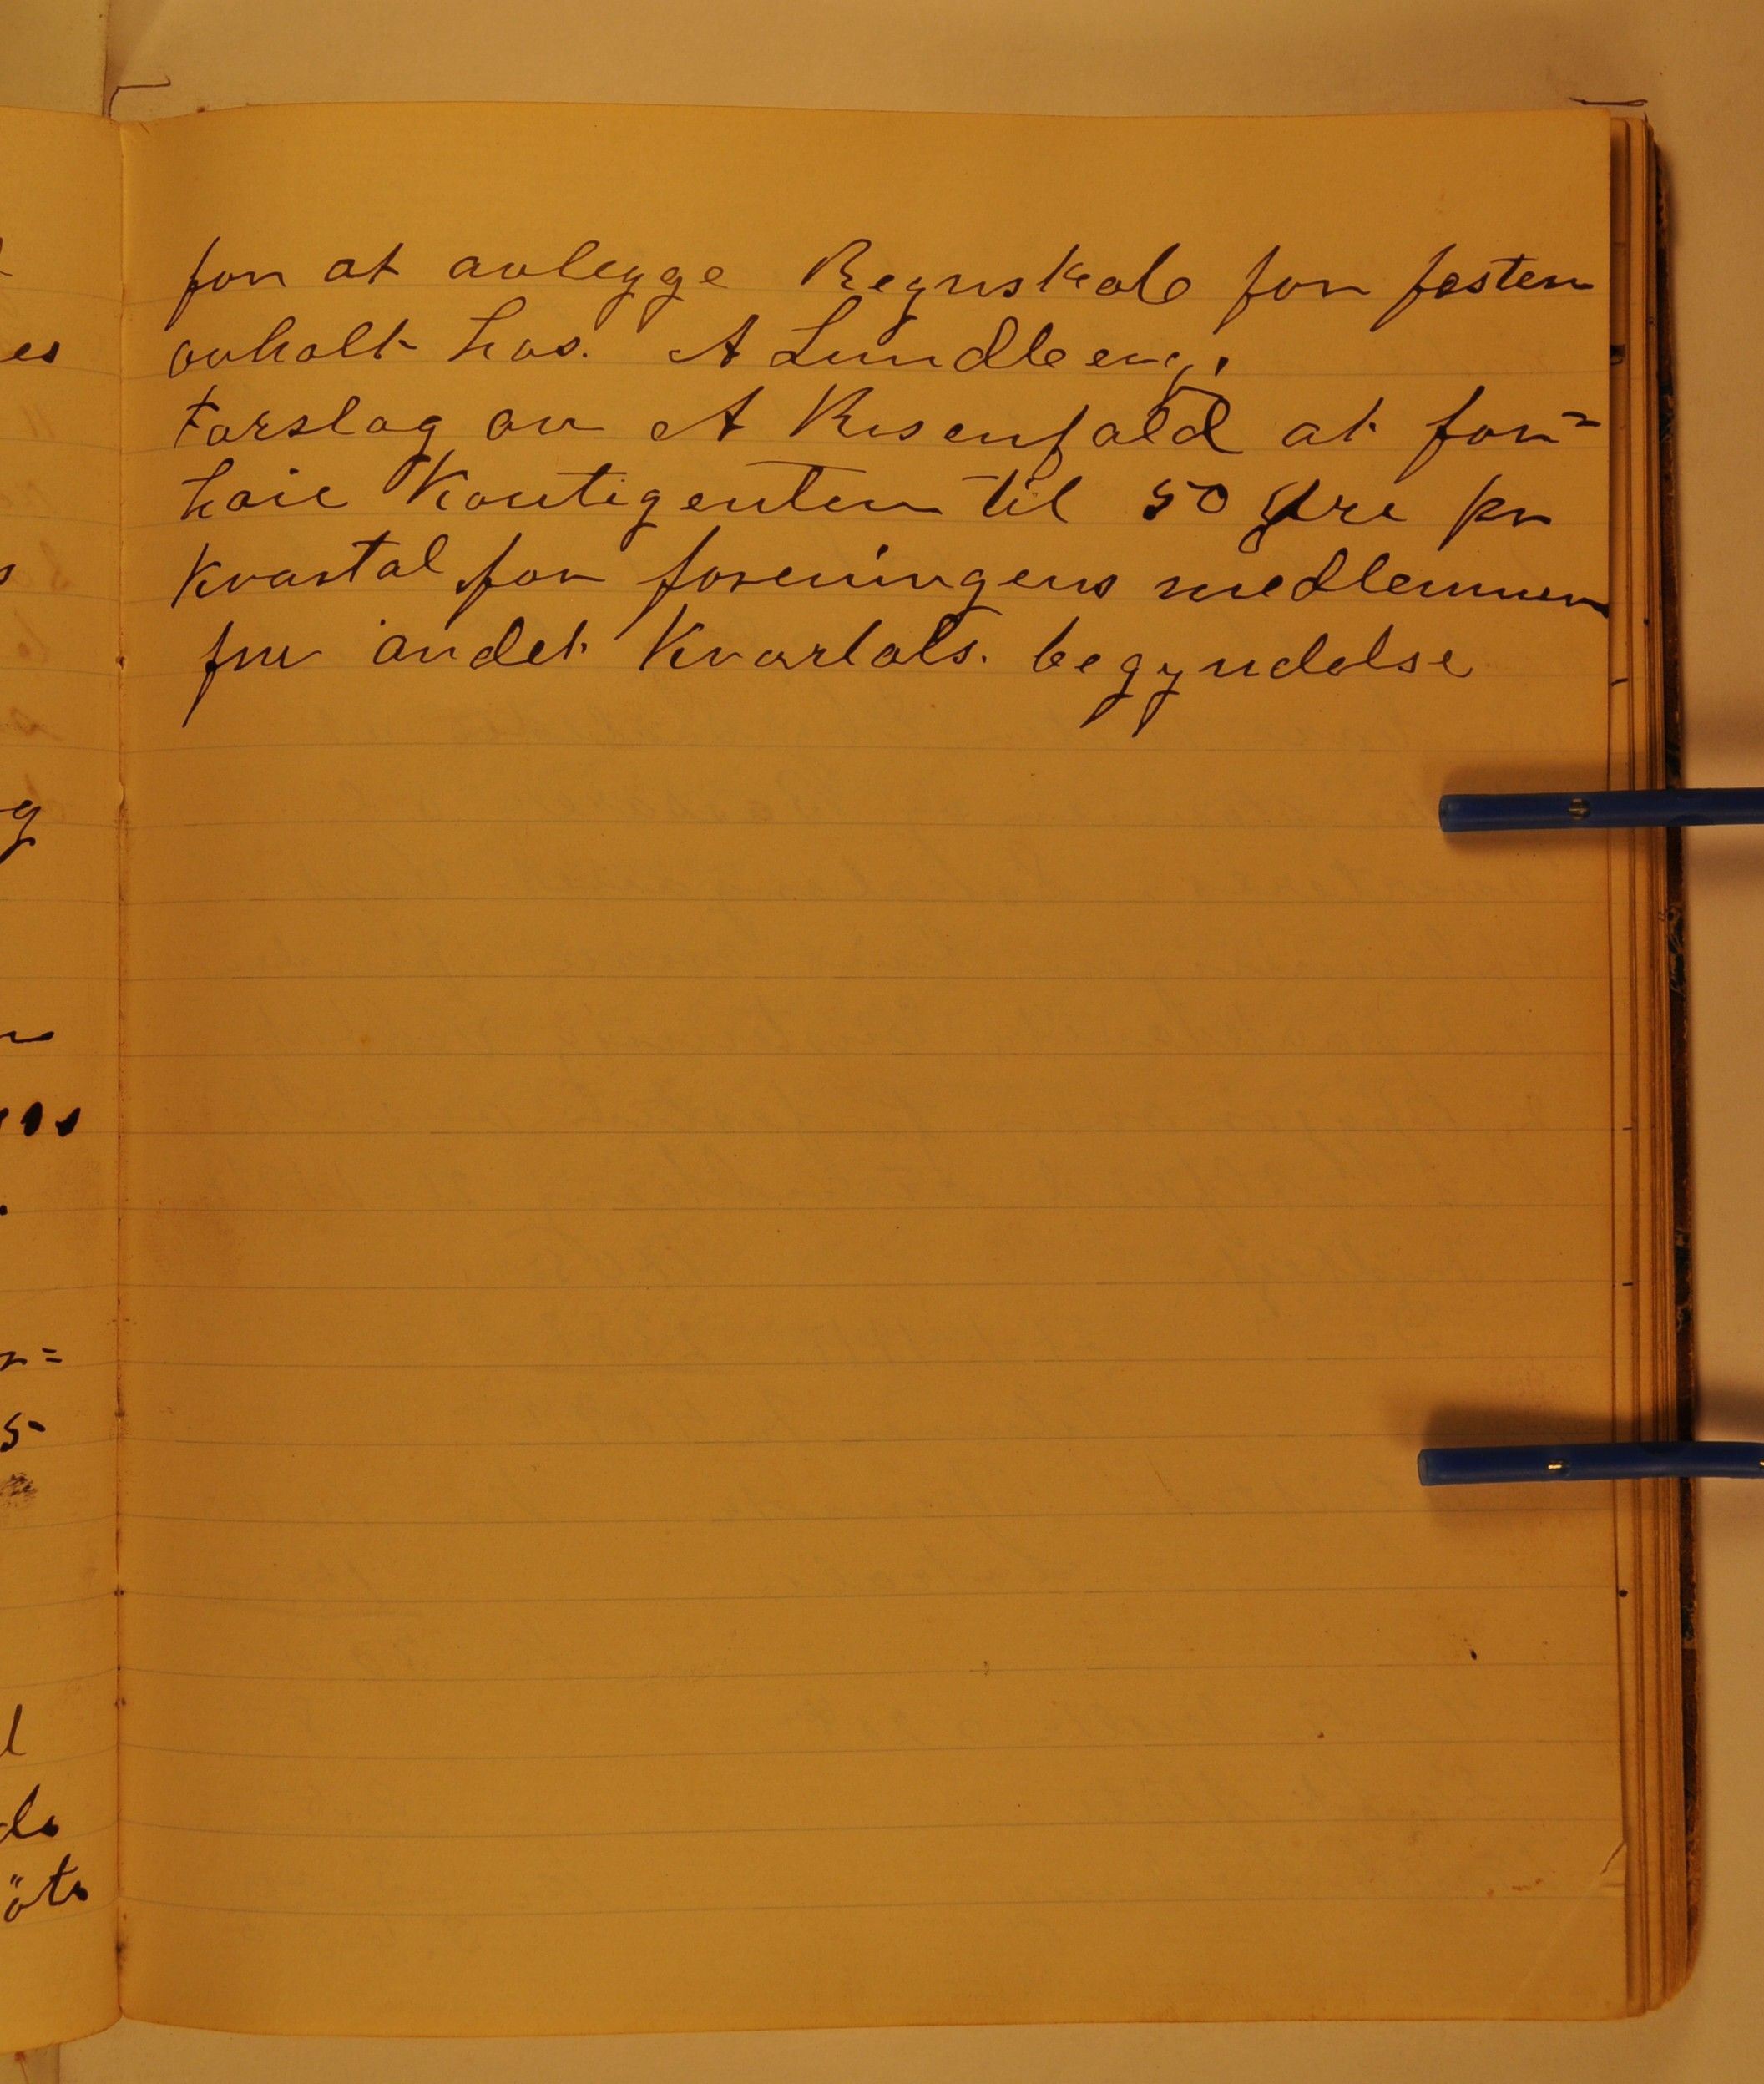 for at avlegge Regnskab for festen
avholt hos. A Lundberg.
Forslag av A Risenfald at for=
høie Kontigenten til 50 Øre pr
kvartal for foreningens medlemmer
fra andet Kvartals. begyndelse